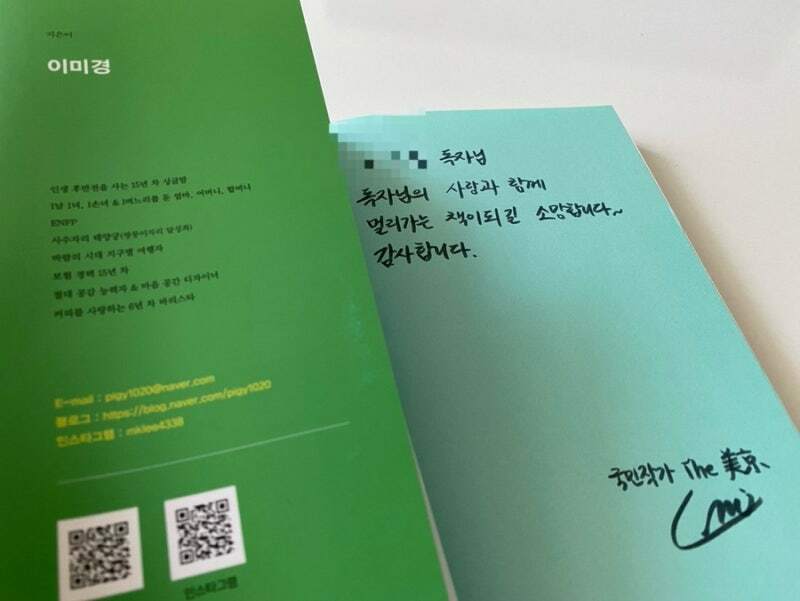 지은이
이미경
인생 후반전을 사는 15년 차 싱글맘
1남 1녀, 1손녀 & 1며느리를 둔 엄마, 어머니, 할머니
ENFP
사수자리 태양궁(쌍둥이자리 달성좌)
바람의 시대 지구별 여행자
보험 경력 15년 차
절대 공감 능력자 & 마음 공간 디자이너
커피를 사랑하는 6년 차 바리스타
E-mail : pigy1020@naver.com
블로그 : https://blog.naver.com/pigy1020
인스타그램 : mklee4338
인스타그램
독자님
독자님의 사랑과 함께
멀리가는 책이되길 소망합니다~
감사합니다.
국민작가 The 美京